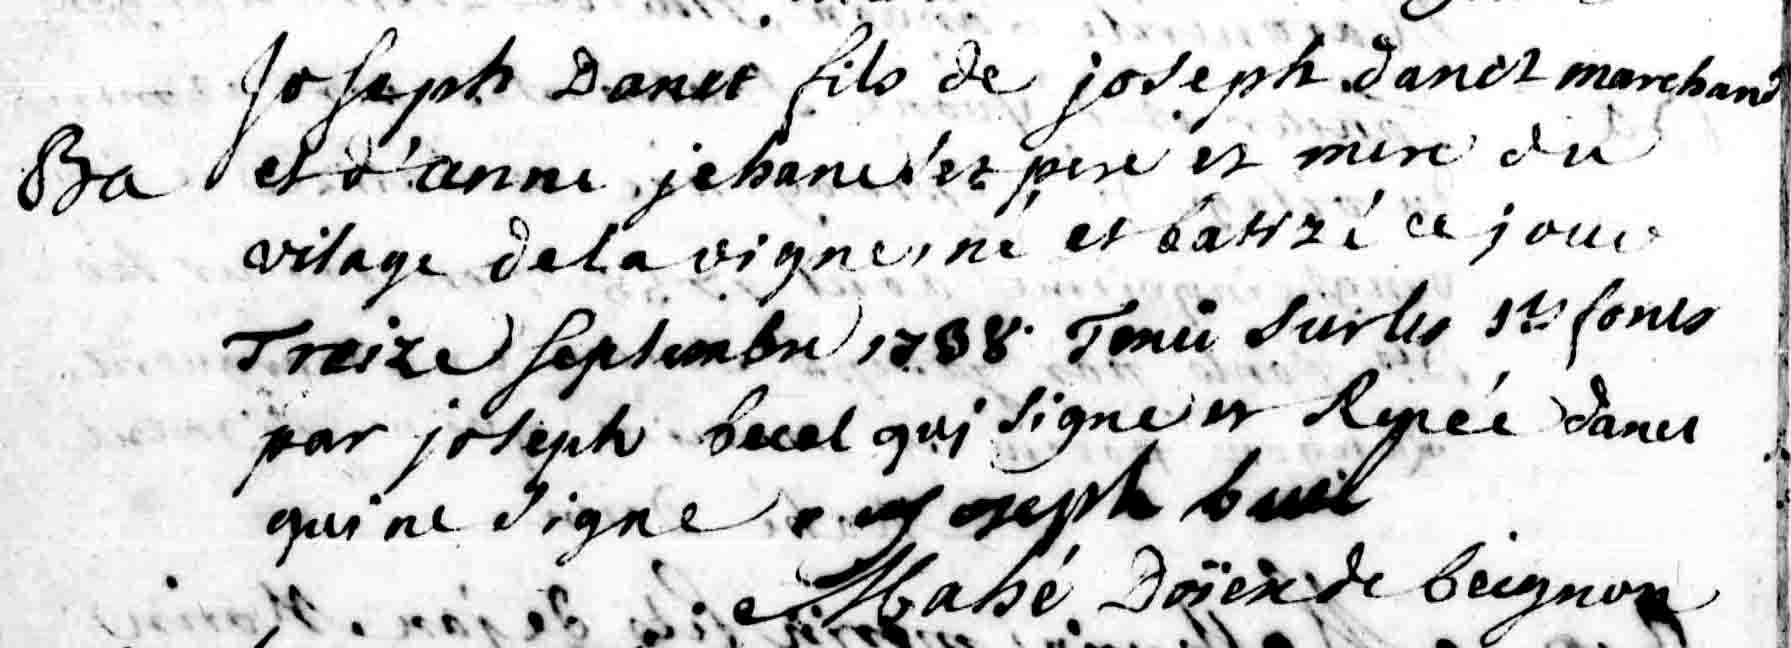 Joseph Danet fils de joseph danet marchand
Ba et d'anne jehanne et pere et mere du
vilage de la vigne, né et batizé ce jour
Treize Septembre 1738 Tenü sur les sts fonts
par joseph becel qui signe et Renée danet
qui ne signe Joseph becel
Mahé Doïen de beignon